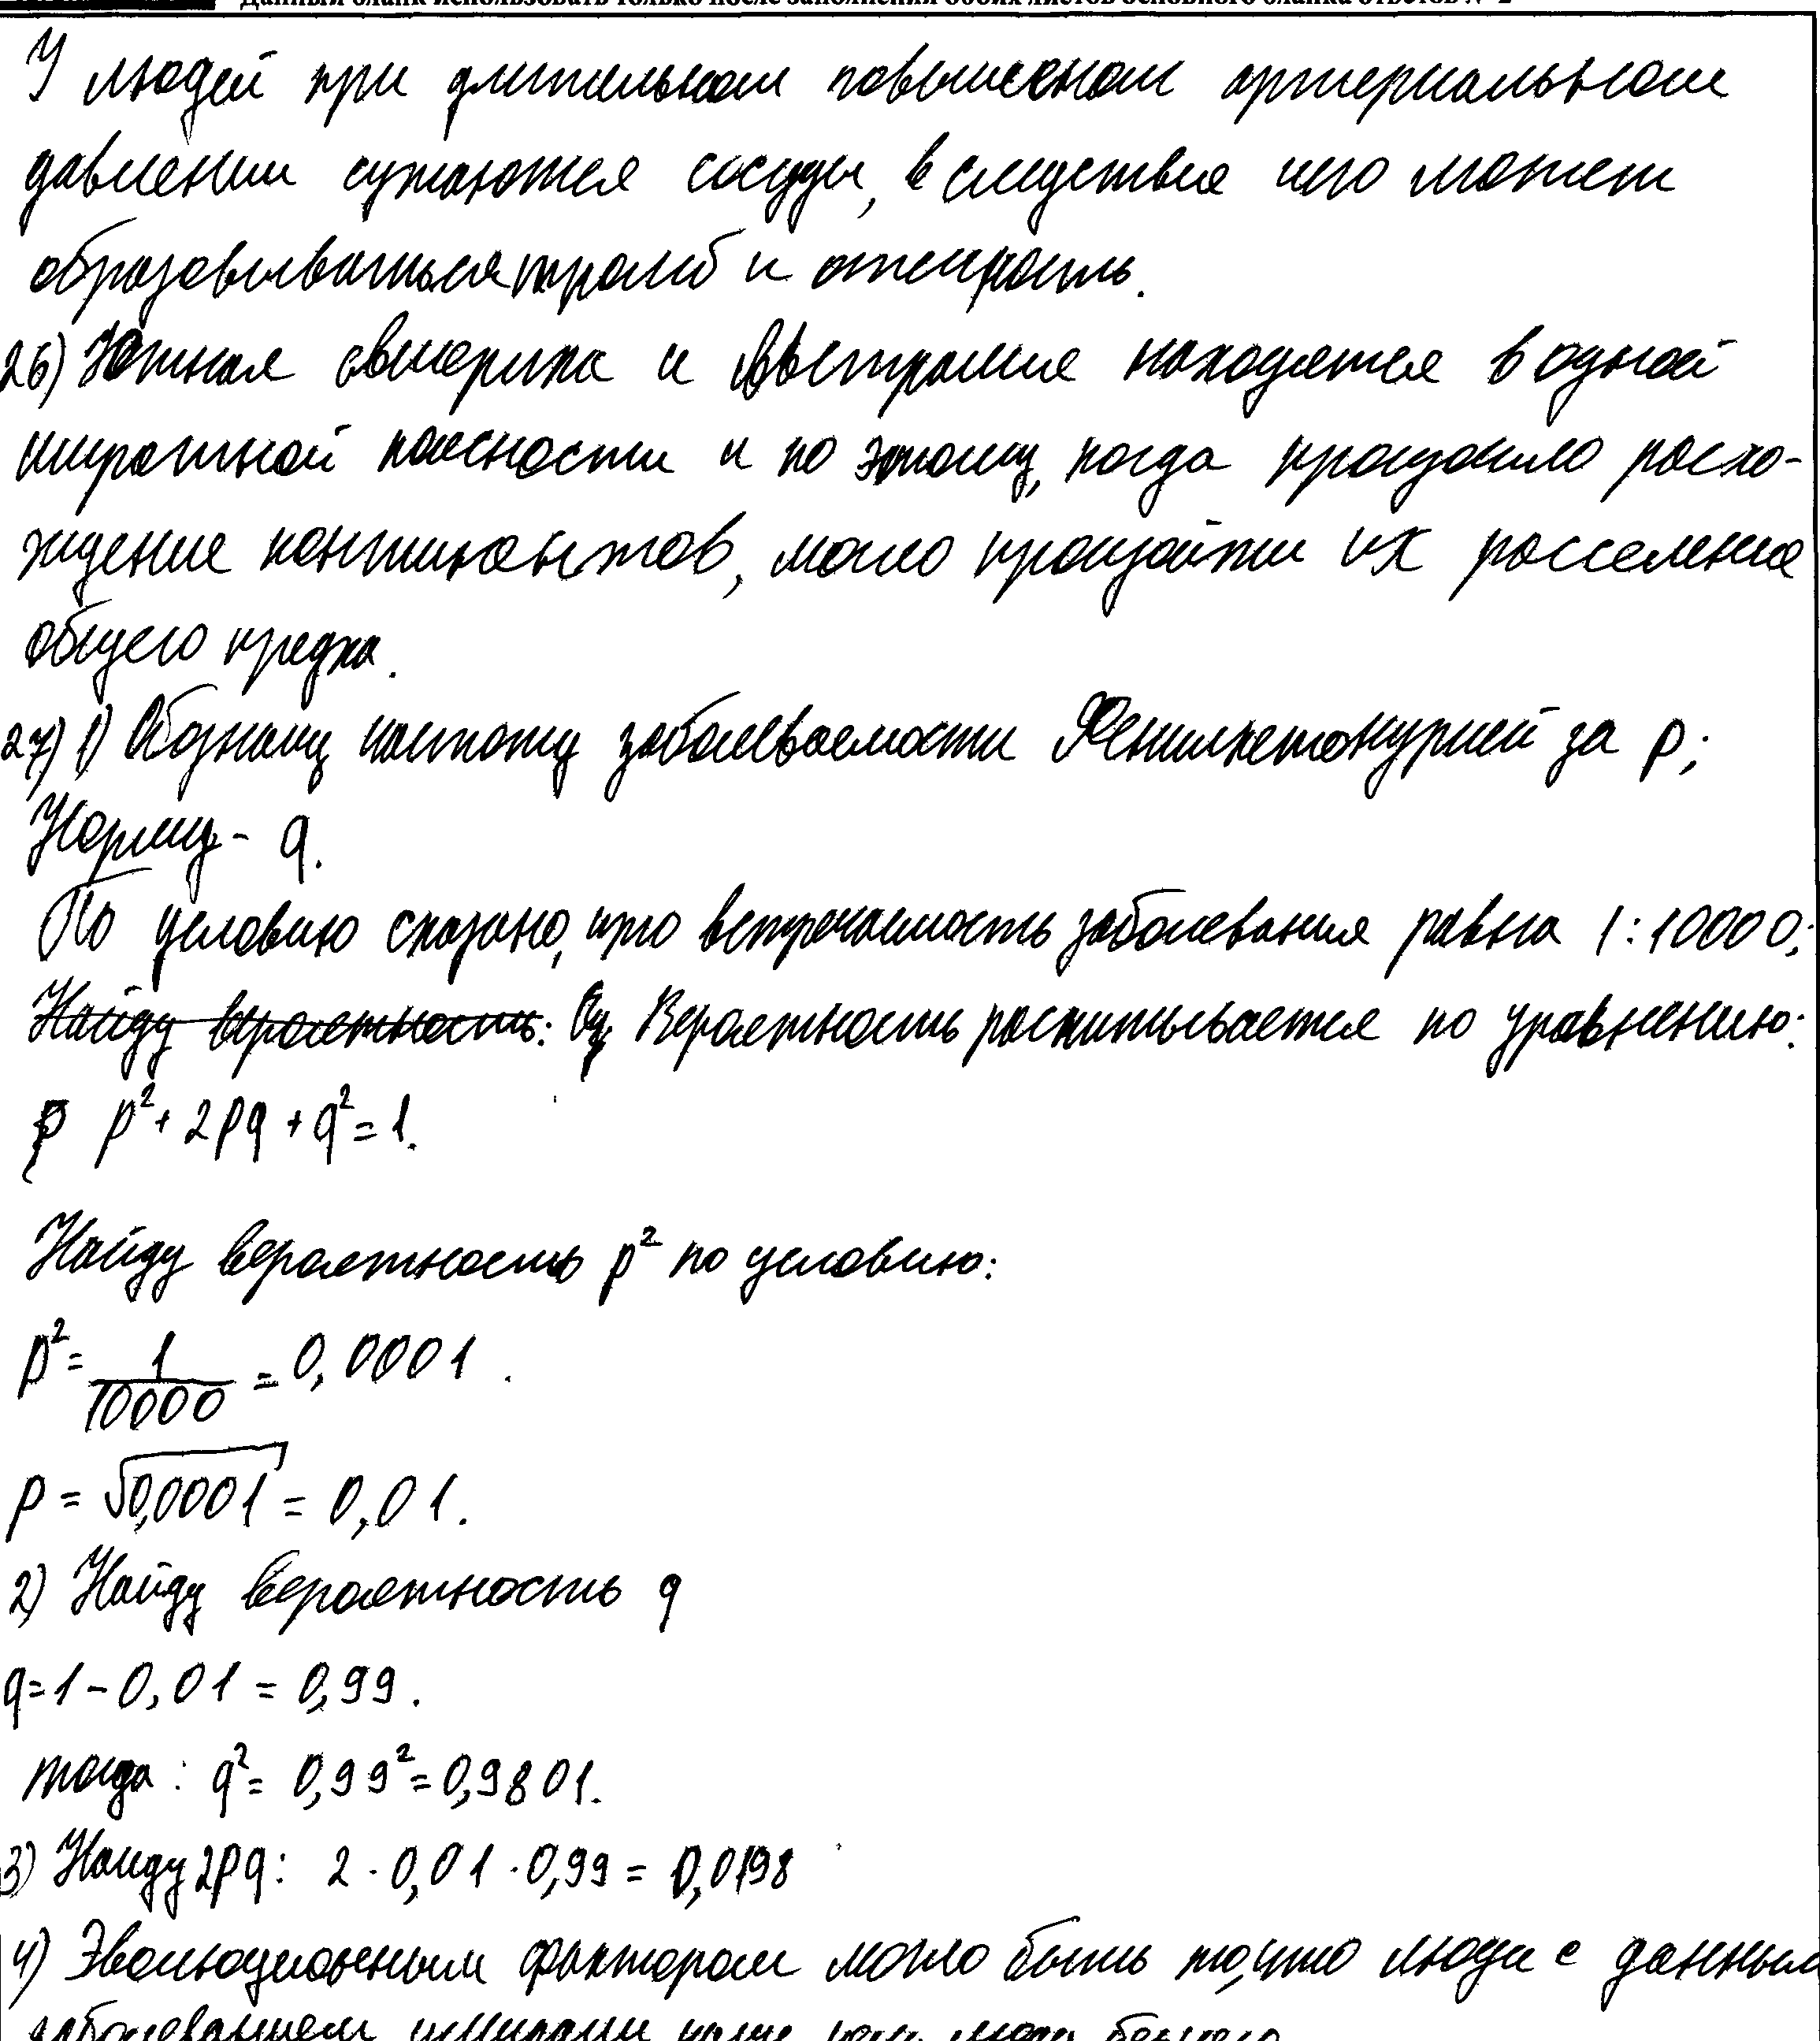 Данный бланк использовать только после заполнения обоих листов основного бланка ответов № 2
У людей при длительном повышеном артериальном
давлении сужаются сосуды, в следствие чего может
образовываться тромб и
26) Южная америка и Австралия находятся в одной
широтной поясности и по этому, когда произошло расхо-
ждение континентов, могло произойти их расселение
общего предка.
27) 1) Обозначу частоту заболеваемости Фенилкетонурией за p;
Норму - q.
По условию сказано, что встречаемость заболевания равна 1:10000;
Найду вероятность: Вероятность расчитывается по уравнению:
p p²+2pq+q²=1.
Найду вероятность p² по условию:
p²= 1/10000 = 0,0001.
p = √0,0001 = 0,01.
2) Найду вероятность q
q=1-0,01 = 0,99.
тогда: q²= 0,99²=0,9801.
3) Найду 2pq: 2·0,01·0,99 = 0,0198
4) Эволюционным фактором могло быть то, что люди с данным
заболеванием чаще чем люди